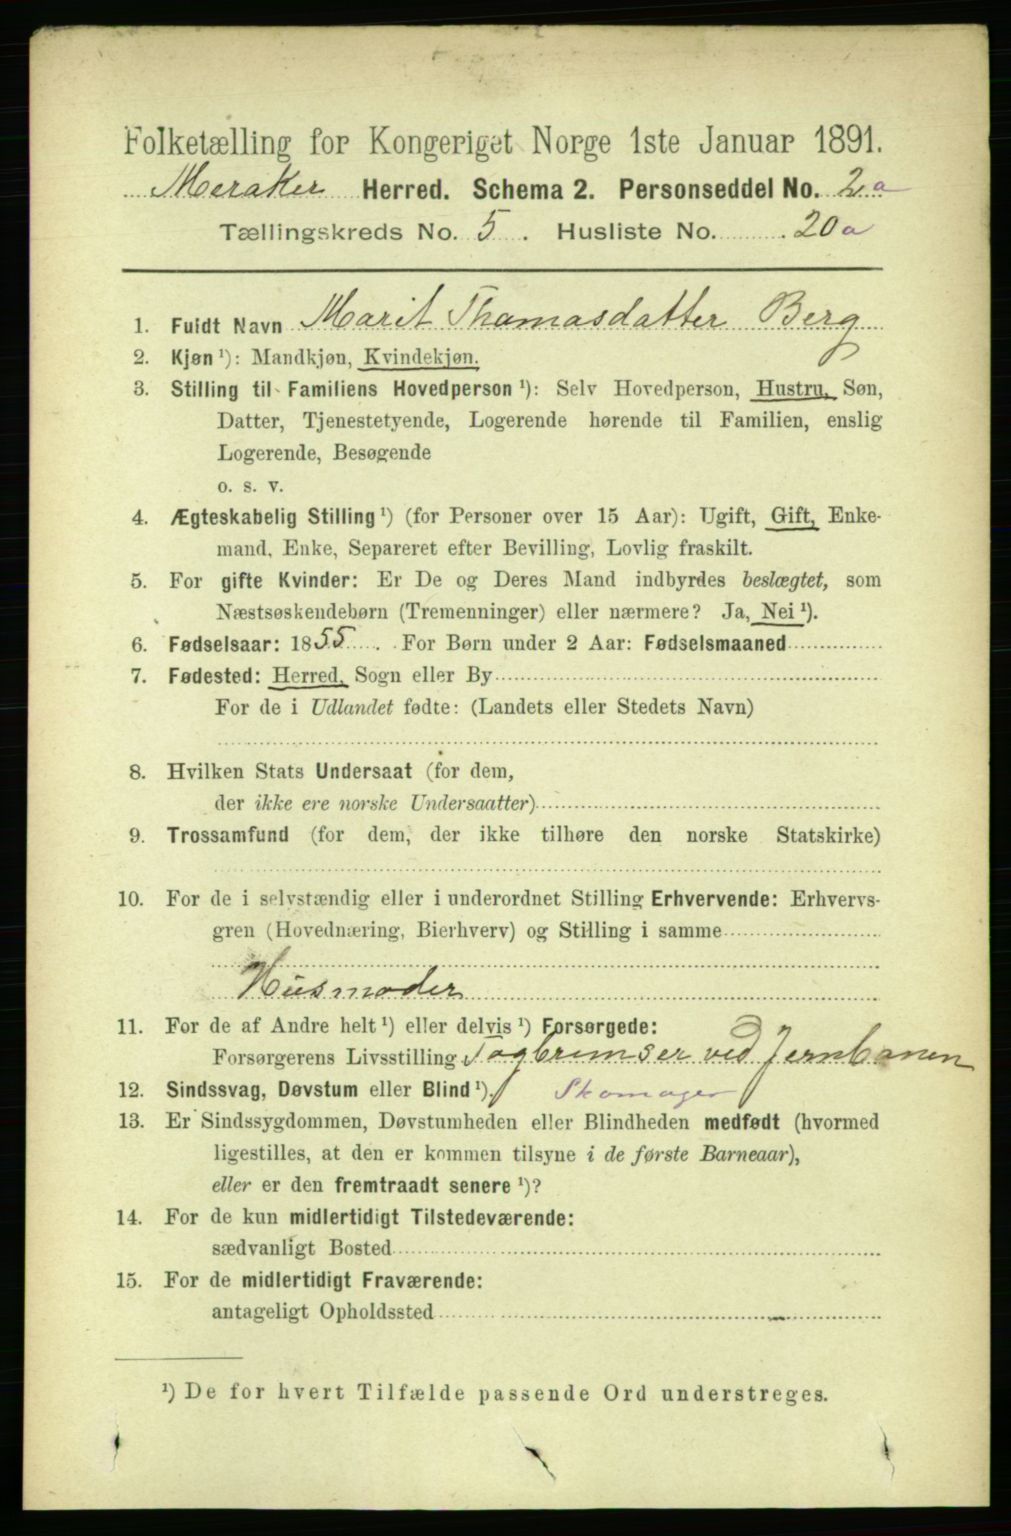 Folketælling for Kongeriget Norge 1ste Januar 1891.
Meraker Herred. Schema 2. Personseddel No. 2a
Tællingskreds No. 5. Husliste No. 20a
1. Fuldt Navn Marit Thomasdatter Berg
2. Kjøn¹): Mandkjøn, Kvindekjøn.
3. Stilling til Familiens Hovedperson¹): Selv Hovedperson, Hustru, Søn,
Datter, Tjenestetyende, Logerende hørende til Familien, enslig
Logerende, Besøgende
o. s. v.
4. Ægteskabelig Stilling¹) (for Personer over 15 Aar): Ugift, Gift, Enke-
mand, Enke, Separeret efter Bevilling, Lovlig fraskilt.
5. For gifte Kvinder: Er De og Deres Mand indbyrdes beslægtet, som
Næstsøskendebørn (Tremenninger) eller nærmere? Ja, Nei¹).
6. Fødselsaar: 1855. For Børn under 2 Aar: Fødselsmaaned
7. Fødested: Herred, Sogn eller By
For de i Udlandet fødte: (Landets eller Stedets Navn)
8. Hvilken Stats Undersaat (for dem,
der ikke ere norske Undersaatter)
9. Trossamfund (for dem, der ikke tilhøre den norske Statskirke)
10. For de i selvstændig eller i underordnet Stilling Erhvervende: Erhvervs-
gren (Hovednæring, Bierhverv) og Stilling i samme
Husmoder
11. For de af Andre helt¹) eller delvis¹) Forsørgede:
Forsørgerens Livsstilling Togbremser ved Jernbanen
12. Sindssvag, Døvstum eller Blind¹). Skomager
13. Er Sindssygdommen, Døvstumheden eller Blindheden medfødt (hvormed
ligestilles, at den er kommen tilsyne i de første Barneaar),
eller er den fremtraadt senere¹)?
14. For de kun midlertidigt Tilstedeværende:
sædvanligt Bosted
15. For de midlertidigt Fraværende:
antageligt Opholdssted
¹) De for hvert Tilfælde passende Ord understreges.